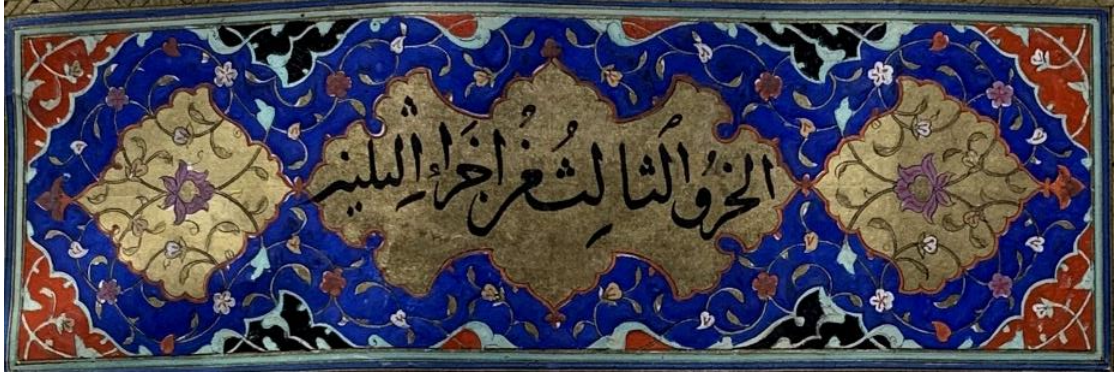 الجزو الثالث من اجزاء الثلثين